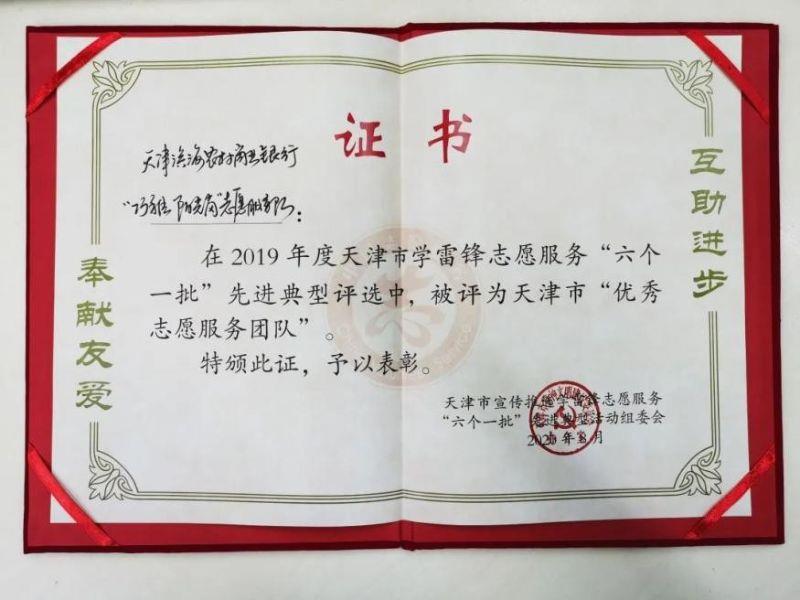 证书
天津滨海农村商业银行
志愿服务队：
在2019年度天津市学雷锋志愿服务“六个
一批”先进典型评选中，被评为天津市“优秀
志愿服务团队”。
特颁此证，予以表彰。
天津市宣传推选学雷锋志愿服务
“六个一批”先进典型活动组委会
2020年8月
奉献友爱
互助进步